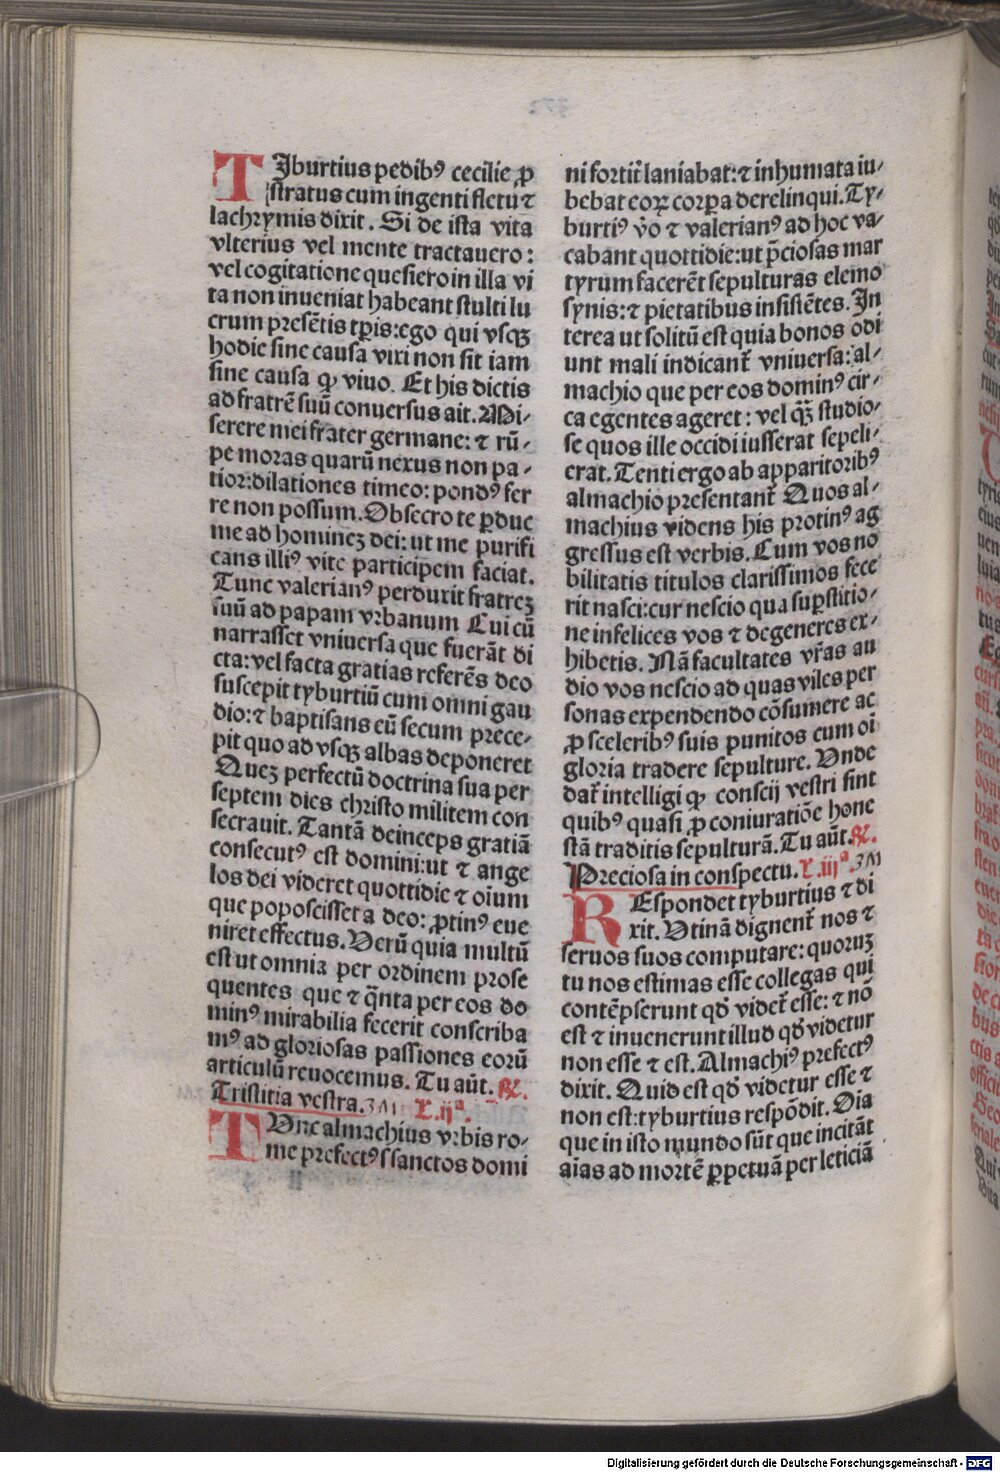 TIburtius pedibꝰ cecilie ꝓ
stratus cum ingenti fletu ⁊
lachrymis dixit. Si de ista vita
vlterius vel mente tractauero:
vel cogitatione quesiero in illa vi
ta non inueniat habeant stulti lu
crum presẽtis tp̃is: ego qui vsqꝫ
hodie sine causa vixi non sit iam
sine causa ꝙ viuo. Et his dictis
ad fratrẽ suũ conuersus ait. Mi⸗
serere mei frater germane: ⁊ rũ⸗
pe moras quarũ nexus non pa⸗
tior: dilationes timeo: pondꝰ fer
re non possum. Obsecro te ꝑduc
me ad hominez dei: ut me purifi
cans illiꝰ vite participem faciat.
Tunc valerianꝰ perduxit fratrez
suũ ad papam vrbanum Cui cũ
narrasset vniuersa que fuerãt di
cta: vel facta gratias referẽs deo
suscepit tyburtiũ cum omni gau
dio: ⁊ baptisans eũ secum prece⸗
pit quo ad vsqꝫ albas deponeret
Quez perfectũ doctrina sua per
septem dies christo militem con
secrauit. Tantã deinceps gratiã
consecutꝰ est domini: ut ⁊ ange
los dei videret quottidie ⁊ oĩum
que poposcisset a deo: ꝓtinꝰ eue
niret effectus. Verũ quia multũ
est ut omnia per ordinem prose
quentes que ⁊ q̃nta per eos do
minꝰ mirabilia fecerit conscriba
mꝰ ad gloriosas passiones eorũ
articulũ reuocemus. Tu aũt. ℟.
Tristitia vestra. L. ijᵃ.
TVnc almachius vrbis ro⸗
me prefectꝰ sanctos domi
ni fortit̃ laniabat: ⁊ inhumata iu⸗
bebat eoꝝ corꝑa derelinqui. Ty⸗
burtiꝰ v̾o ⁊ valerianꝰ ad hoc va⸗
cabant quottidie: ut p̃ciosas mar
tyrum facerẽt sepulturas elemo
synis: ⁊ pietatibus insistẽtes. In
terea ut solitũ est quia bonos odi
unt mali indicant̃ vniuersa: al⸗
machio que per eos dominꝰ cir⸗
ca egentes ageret: vel q̃ꝫ studio⸗
se quos ille occidi iusserat sepeli⸗
erat. Tenti ergo ab apparitoribꝰ
almachio presentant̃ Quos al⸗
machius videns his protinꝰ ag
gressus est verbis. Cum vos no
bilitatis titulos clarissimos fece
rit nasci: cur nescio qua suꝑstitio⸗
ne infelices vos ⁊ degeneres ex⸗
hibetis. Nã facultates vr̃as au
dio vos nescio ad quas viles per
sonas expendendo cõsumere ac
ꝓ sceleribꝰ suis punitos cum oĩ
gloria tradere sepulture. Vnde
dat̃ intelligi ꝙ conscij vestri sint
quibꝰ quasi ꝓ coniuratiõe hone
stã traditis sepulturã. Tu aũt. ℟.
Preciosa in conspectu. L. iijᵃ.
REspondet tyburtius ⁊ di
xit. Vtinã dignent̃ nos ⁊
seruos suos computare: quoruꝫ
tu nos estimas esse collegas qui
contẽpserunt qđ videt̃ esse: ⁊ nõ
est ⁊ inuenerunt illud qđ videtur
non esse ⁊ est. Almachiꝰ prefectꝰ
dixit. Quid est qđ videtur esse ⁊
non est: tyburtius respõdit. Oĩa
que in isto mundo sũt que incitãt
aĩas ad mortẽ ꝑpetuã per leticiã
Digitalisierung gefördert durch die Deutsche Forschungsgemeinschaft - DFG